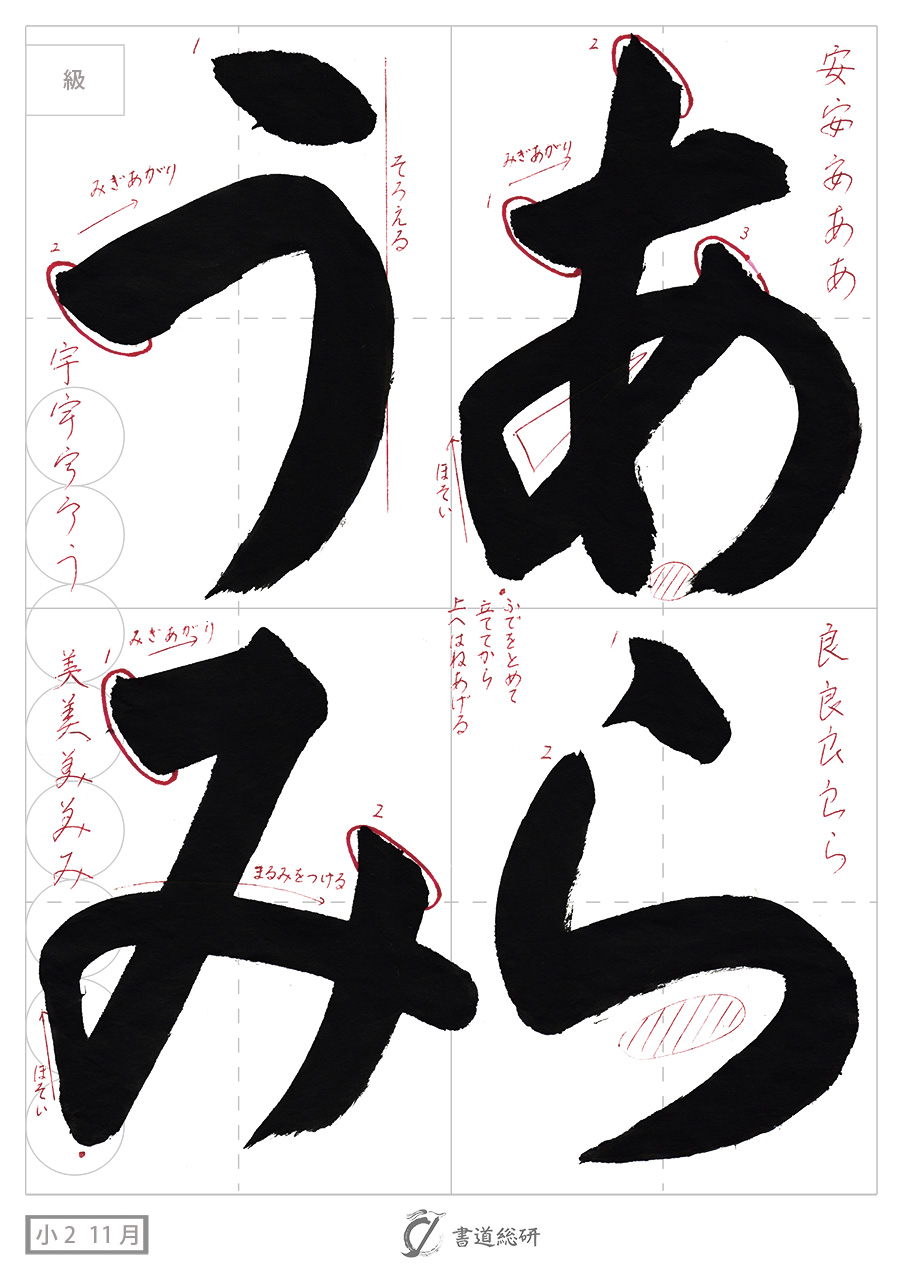 あら
うみ
安安あああ
2
みぎあがり
1
3
ほそい
ふでをとめて
立ててから
上へはねあげる
良良良らら
1
2
級
1
そろえる
みぎあがり
2
宇宇うう
みぎあがり
1
2
まるみをつける
美美美みみ
ほそい
小2 11月
書道総研